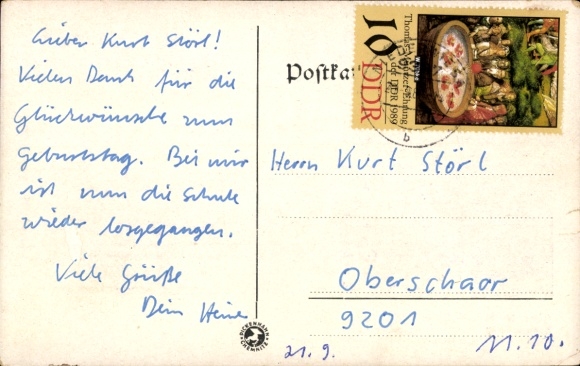 Lieber Kurt Störl!
Vielen Dank für die
Glückwünsche zum
Geburtstag. Bei mir
ist nun die Schule
wieder losgegangen.
Viele Grüße
Dein Heiner
Postka
10 DDR
Thomas-Müntzer-Ehrung
der DDR 1989
Herrn Kurt Störl
Oberschaar
9201
21. 9.
11. 10.
DICKENHAHN
CHEMNITZ